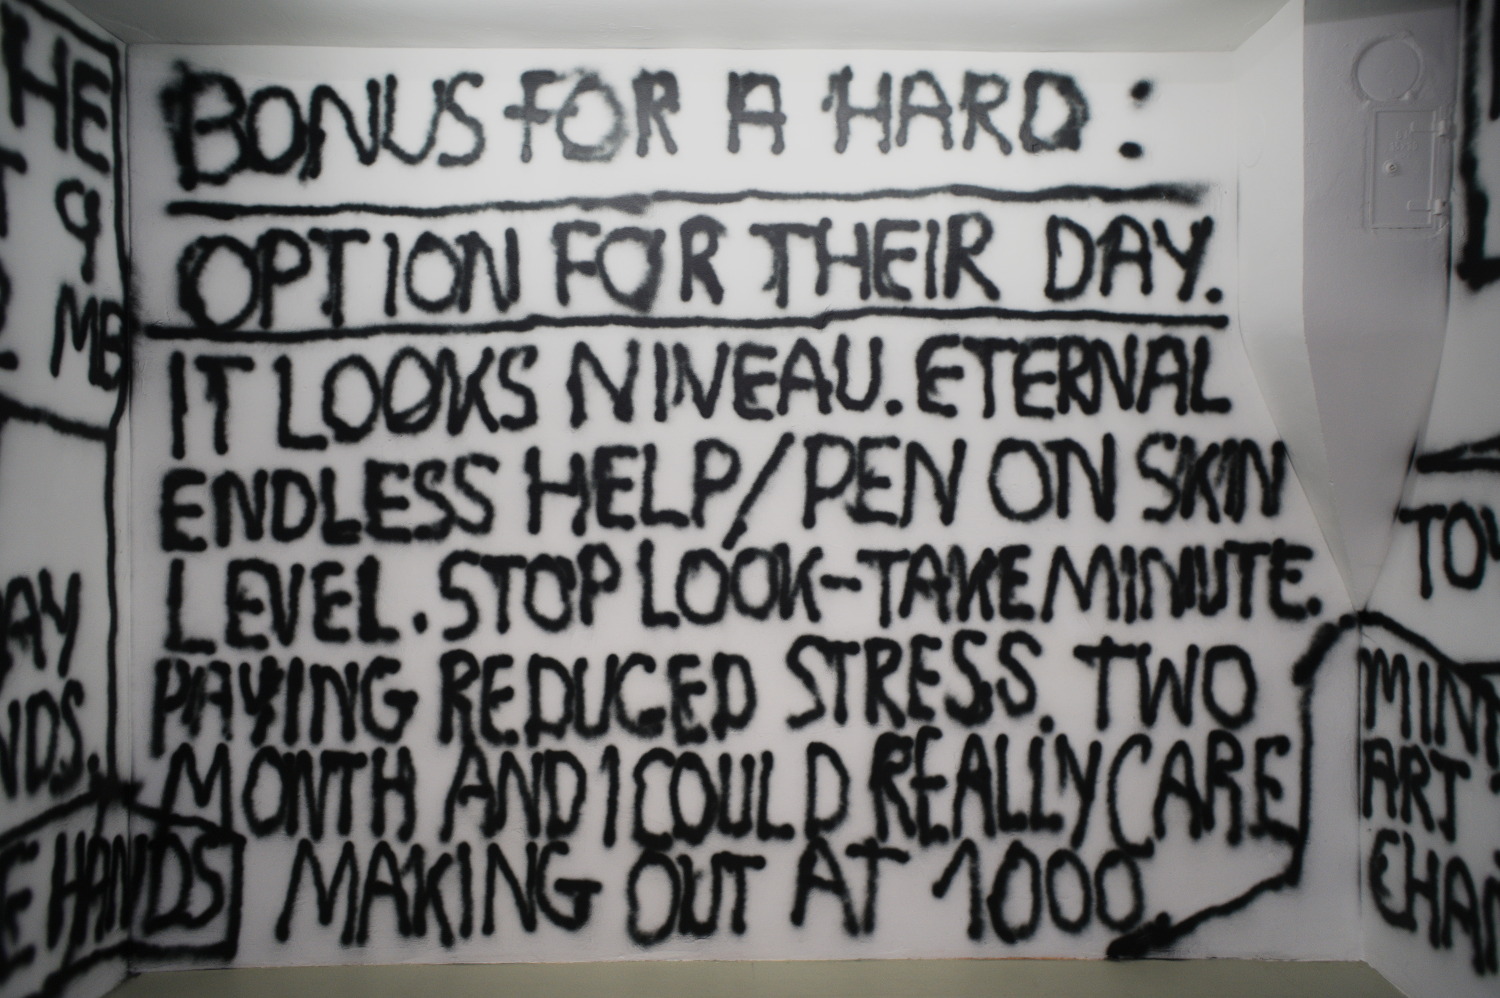 BONUS FOR A HARD :
OPTION FOR THEIR DAY.
IT LOOKS NIVEAU. ETERNAL
ENDLESS HELP/PEN ON SKIN
LEVEL. STOP LOOK-TAKE MINUTE.
PAYING REDUCED STRESS. TWO
MONTH AND I COULD REALLY CARE
MAKING OUT AT 1000
HE
9
MB
AY
NDS.
E HANDS
TOW
MINT
ART
CHAN